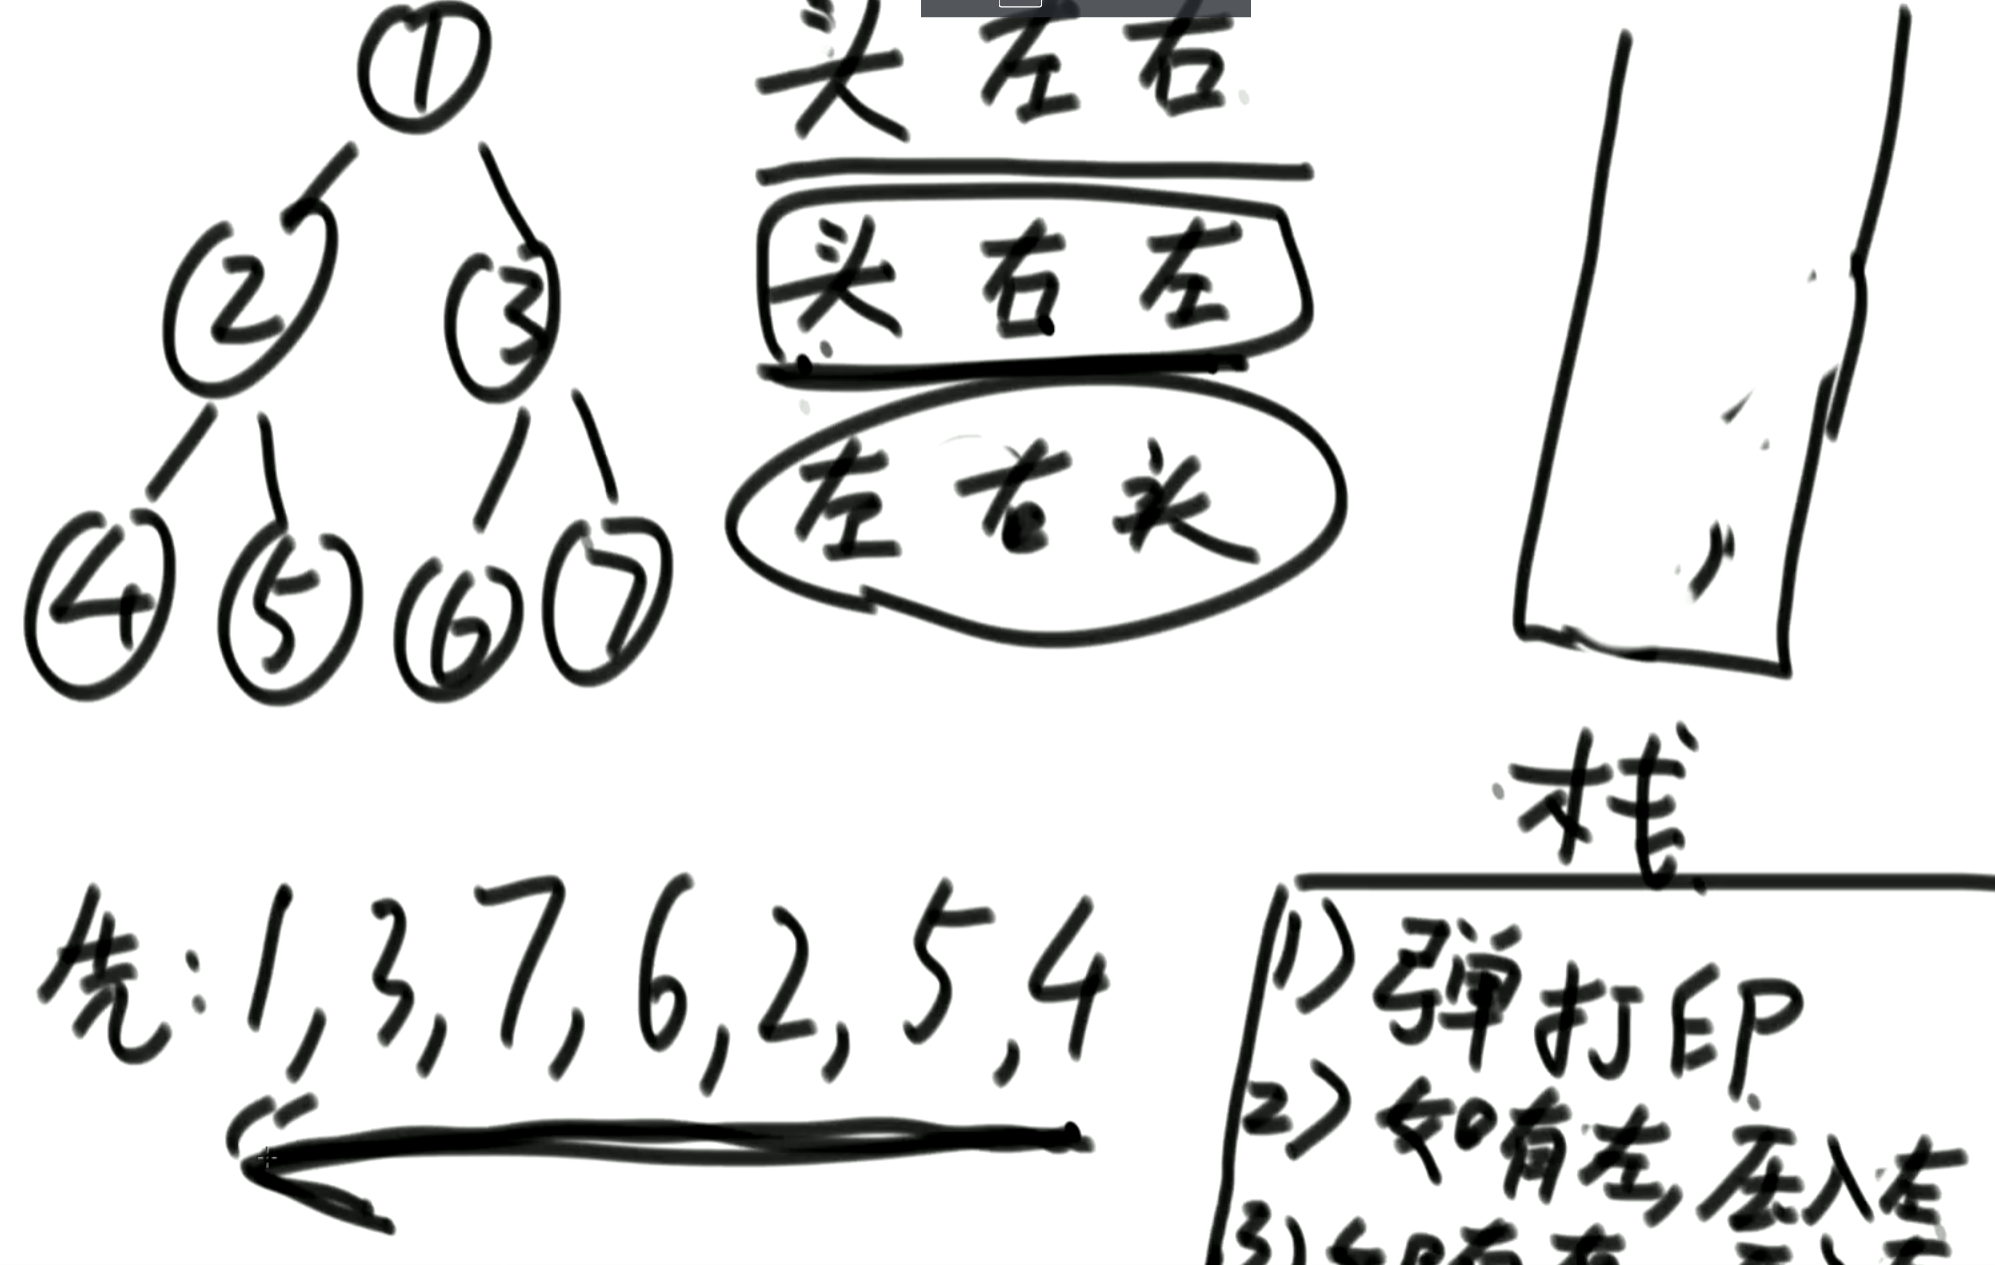 1
2 3
4 5 6 7
头 左 右
头 右 左
左 右 头
栈
先: 1, 3, 7, 6, 2, 5, 4
1) 弹打印
2) 如有左, 压入左
3) 如有右